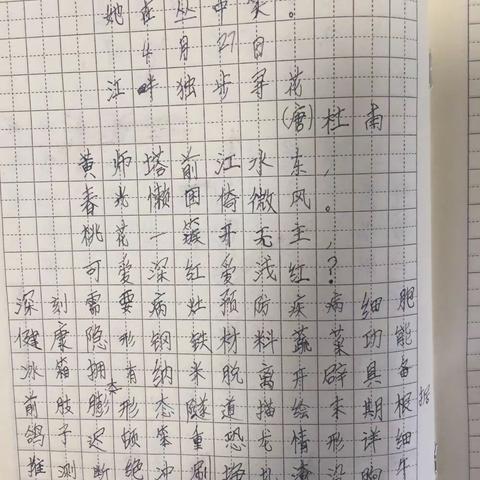 她在丛中笑。
4月27日
江畔独步寻花
(唐)杜甫
黄师塔前江水东，
春光懒困倚微风。
桃花一簇开无主，
可爱深红爱浅红?
深刻需要病灶预防疾病细胞
健康隐形钢铁材料蔬菜功能
冰箱拥有纳米脱离开辟具备
前肢膨大形态隧道描绘末期根据
鸽子迟顿笨重恐龙情形详细
推测断绝冲刷挣扎淹没胸